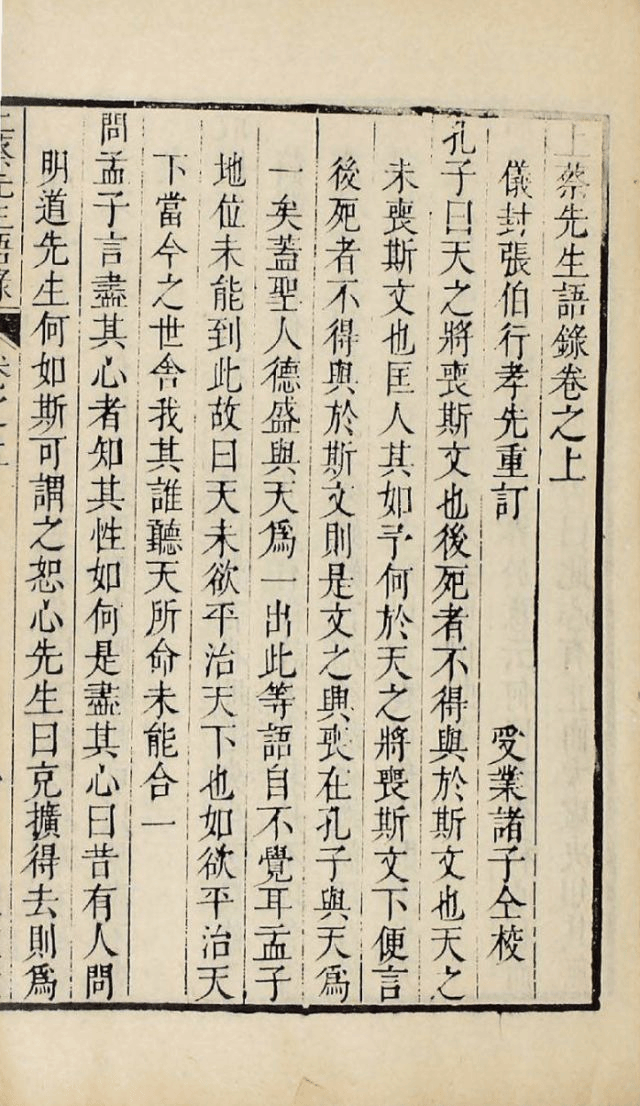 上蔡先生語錄卷之上
儀封張伯行孝先重訂 受業諸子仝校
孔子曰天之將喪斯文也後死者不得與於斯文也天之
未喪斯文也匡人其如予何於天之將喪斯文下便言
後死者不得與於斯文則是文之興喪在孔子與天為
一矣蓋聖人德盛與天為一出此等語自不覺耳孟子
地位未能到此故曰天未欲平治天下也如欲平治天
下當今之世舍我其誰聽天所命未能合一
問孟子言盡其心者知其性如何是盡其心曰昔有人問
明道先生何如斯可謂之恕心先生曰充擴得去則為
上蔡先生語錄 卷之上